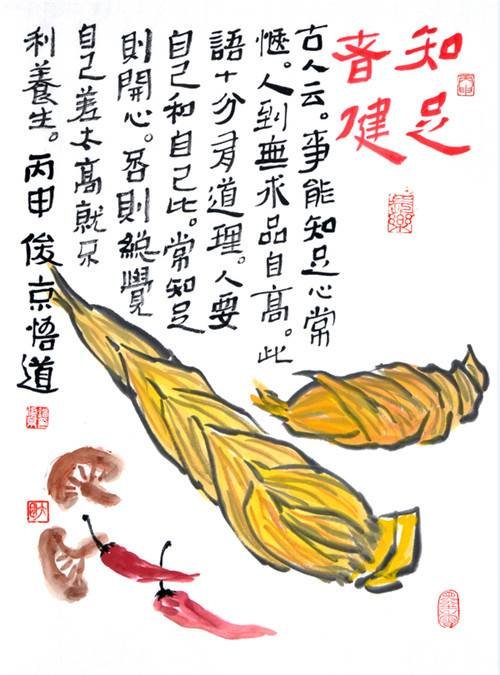 知足
者健
古人云。事能知足心常
愜。人到無求品自高。此
語十分有道理。人要
自己和自己比。常知足
則開心。否則總覺
自己差太高就不
利養生。丙申 俊京悟道
丙申